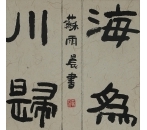 海為
蘇雨長書
川歸